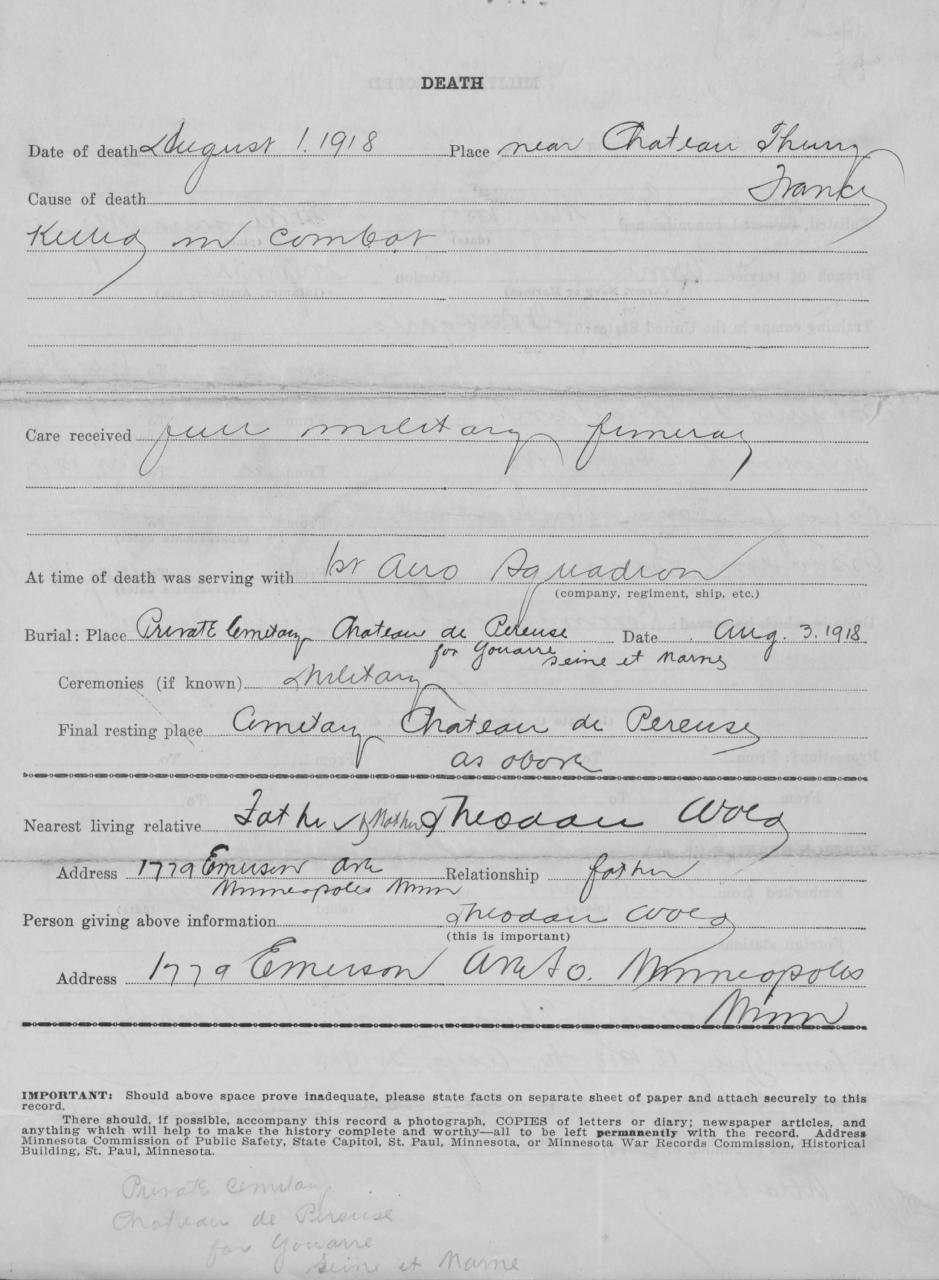 DEATH
Date of death August 1. 1918 Place near Chateau Thierry
France
Cause of death
Killed in combat
Care received full military funeral
At time of death was serving with 1st Aero Squadron
(company, regiment, ship, etc.)
Burial: Place Private Cemetary Chateau de Pereuse Date Aug. 3. 1918
for Youarre
Seine et Marne
Ceremonies (if known) Military
Final resting place Cemetary Chateau de Pereuse
as above
Nearest living relative Father & Mother Theodore Wold
Address 1779 Emerson Ave Relationship father
Minneapolis Minn
Person giving above information Theodore Wold
(this is important)
Address 1779 Emerson Ave So. Minneapolis
Minn
IMPORTANT: Should above space prove inadequate, please state facts on separate sheet of paper and attach securely to this
record.
There should, if possible, accompany this record a photograph, COPIES of letters or diary; newspaper articles, and
anything which will help to make the history complete and worthy—all to be left permanently with the record. Address
Minnesota Commission of Public Safety, State Capitol, St. Paul, Minnesota, or Minnesota War Records Commission, Historical
Building, St. Paul, Minnesota.
Private Cemetary
Chateau de Pereuse
for Youarre
Seine et Marne